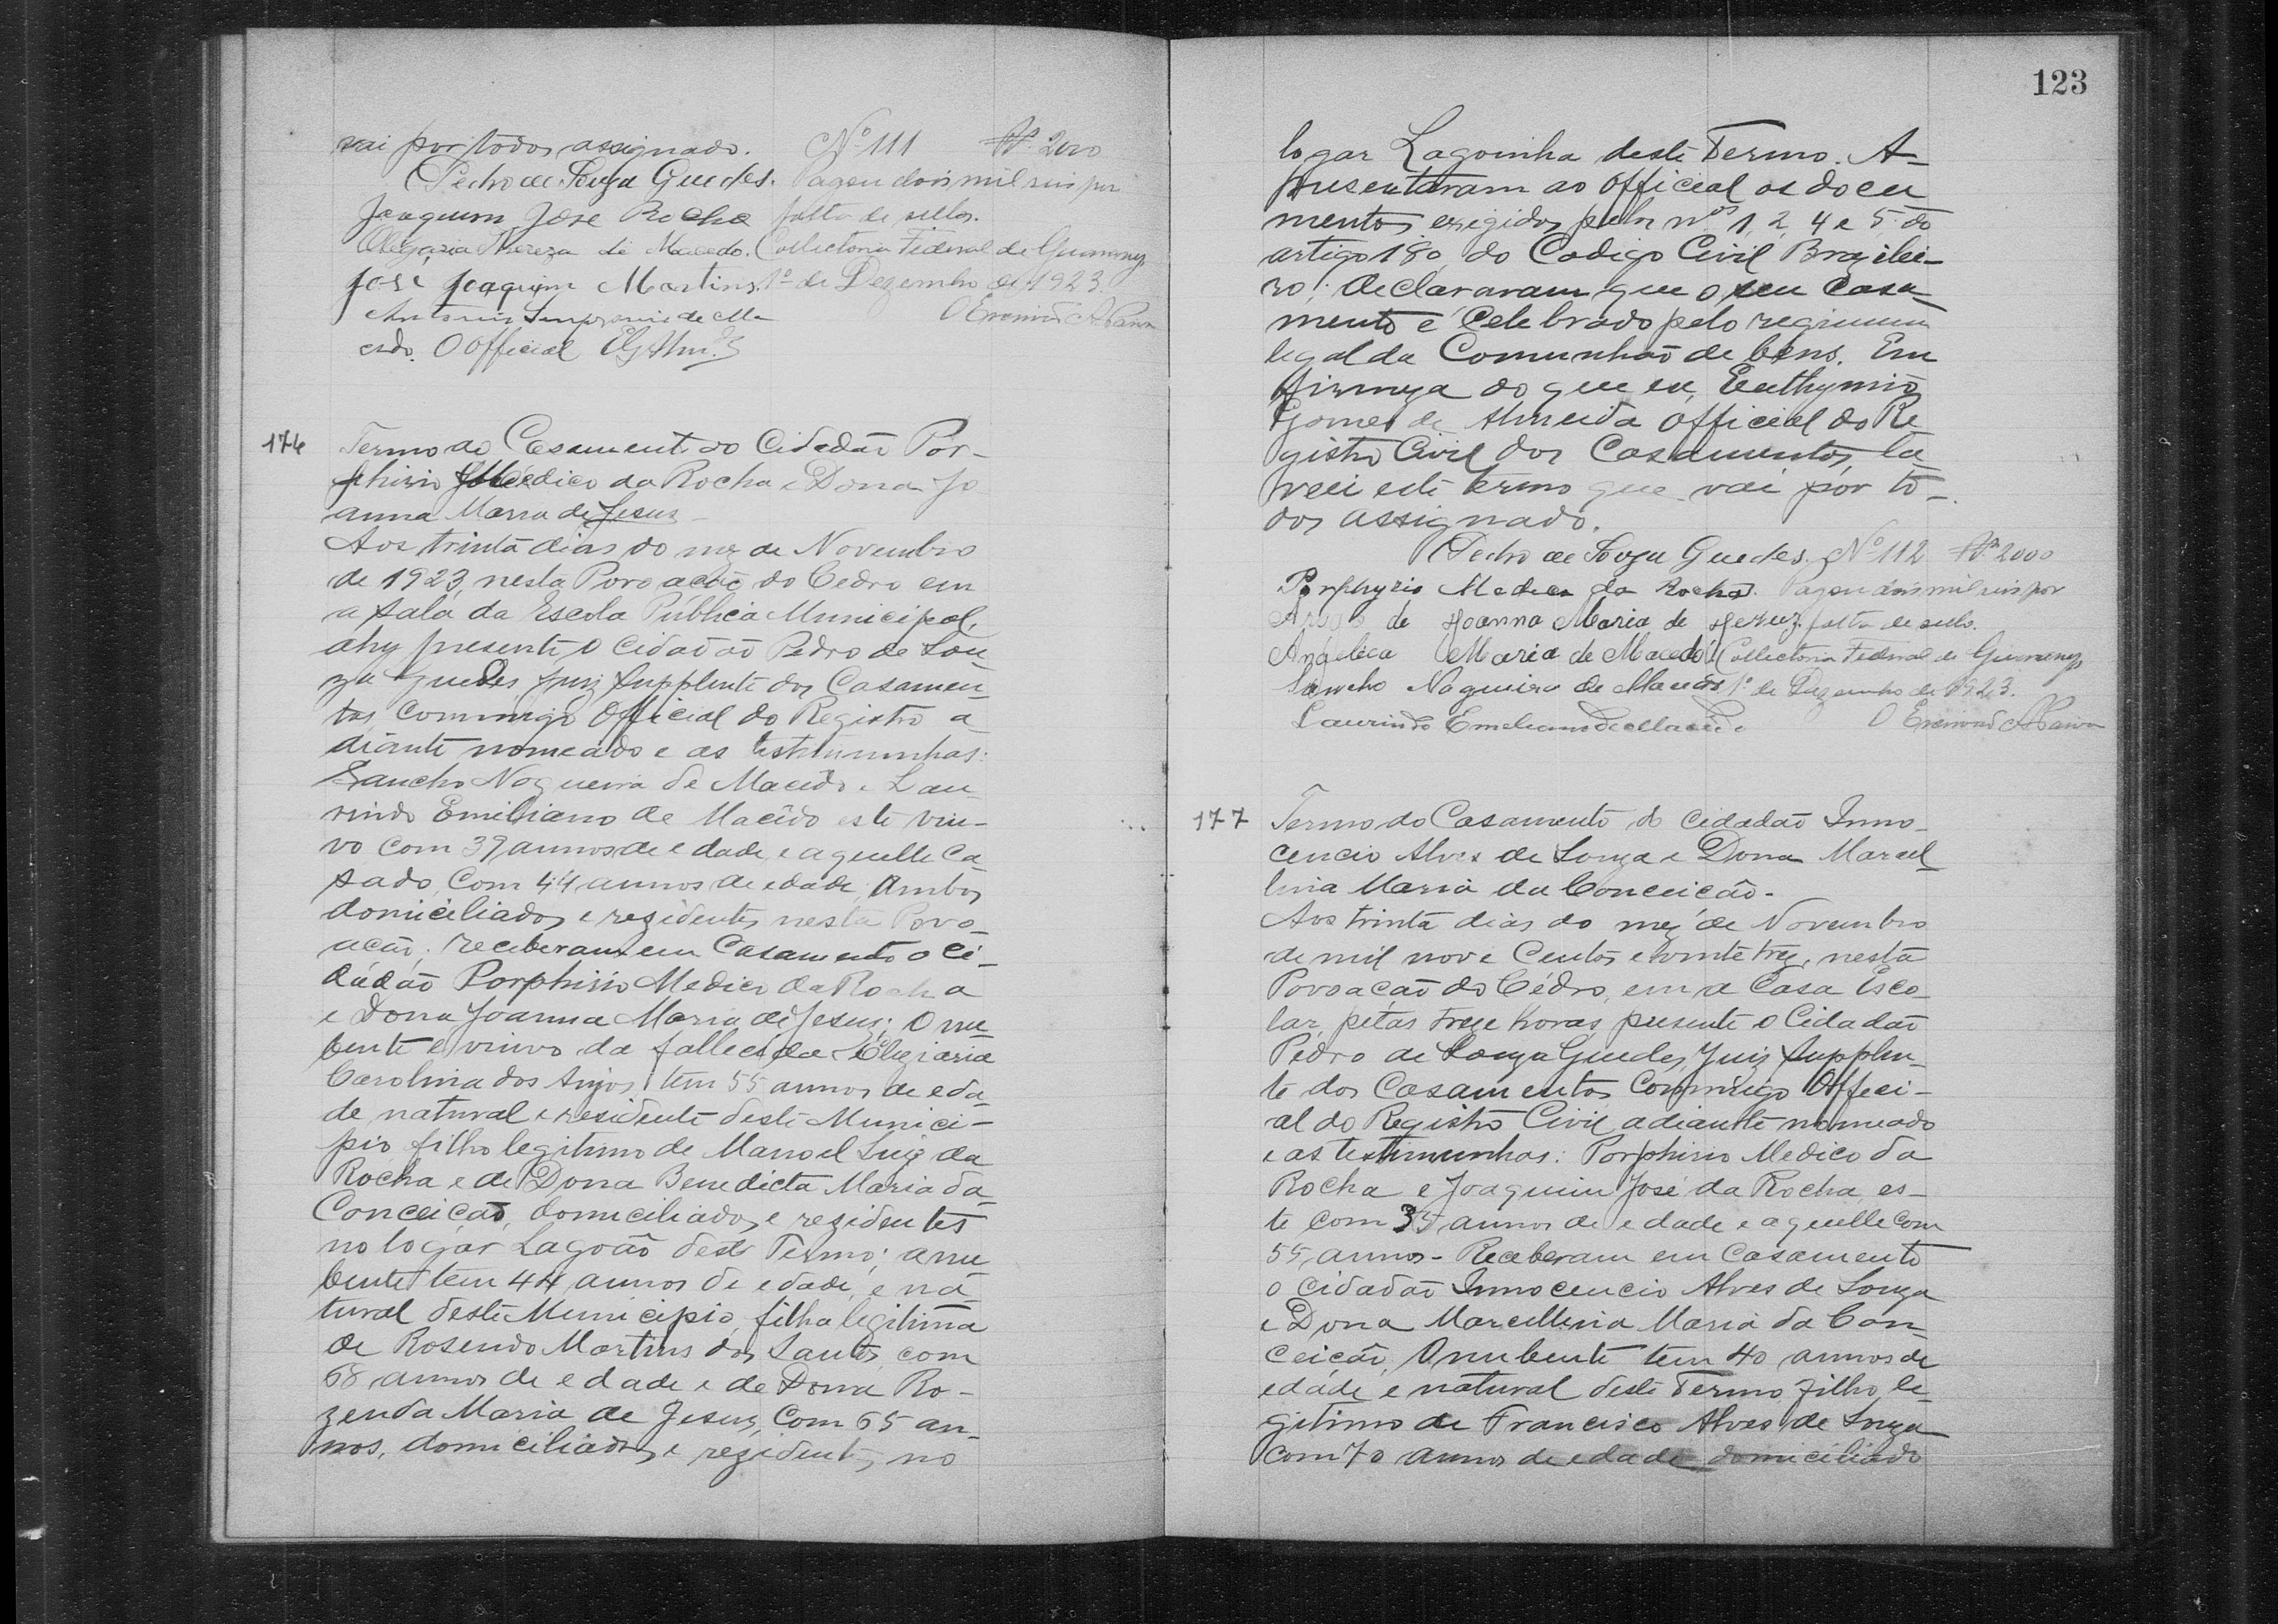 vai por todos assignado.
Nº 111 Rs. 2000
Pedro de Souza Guedes. Pagou dois mil reis por
Joaquim José Rocha falta de sellos.
Olegaria Thereza de Macedo. Collectoria Federal de
José Joaquim Martins. 1º de Dezembro de 1923.
Antonio de Ma- O Escrivão
cedo. O Official EGAlm.
176
Termo do Casamento do Cidadão Por-
phirio Medico da Rocha e Dona Jo
anna Maria de Jesus
Aos trinta dias do mez de Novembro
de 1923, nesta Povoação do Cedro em
a sala da Escola Pública Municipal,
ahy presente o Cidadão Pedro de Sou
za Guedes Juiz Supplente dos Casamen-
tos, Commigo Official do Registro a-
diante nomeado e as testemunhas:
Sancho Nogueira de Macêdo e Lau-
rindo Emiliano de Macêdo este viu-
vo com 39 annos de edade, e aquelle Ca
sado, Com 44 annos de edade, Ambos
domiciliados e rezidentes nesta Povo-
ação; receberam em Casamento o Ci-
dadão Porphirio Medico da Rocha
e Dona Joanna Maria de Jesus; O nu-
bente é viuvo da fallecida
Carolina dos Anjos, tem 55 annos de eda-
de natural e residente deste Munici-
pio, filho legitimo de Manoel Luiz da
Rocha e de Dona Benedicta Maria da
Conceição, domiciliados e rezidentes
no logar Lagoão deste Termo; a nu-
bente tem 44 annos de edade, é na-
tural deste Municipio, filha legitima
de Rosendo Martins dos Santos, com
68 annos de edade e de Dona Ro-
zenda Maria de Jesus, Com 65 an-
nos, domiciliados e rezidentes no
123
logar Lagoinha deste Termo. A-
presentaram ao Official os docu
mentos exigidos pelos nos 1, 2, 4 e 5 do
artigo 180, do Codigo Civil Brazilei-
ro; declararam que o seu Casa-
mento é Celebrado pelo regimem
legal da Comunhão de bens. Em
firmeza do que eu, Euthymio
Gomes de Almeida Official do Re
gistro Civil dos Casamentos, la
vrei este termo que vai por to-
dos assignado.
Pedro de Souza Guedes. Nº 112 Rs. 2000
Porphyrio Medico da Rocha. Pagou dois mil reis por
Arogo de Hoanna Maria de Hezuz. falta de sello.
Angelica Maria de Macedo. Collectoria Federal de
Sancho Nogueira de Macedo 1º de Dezembro de 1923.
Laurindo Emeliano de Macedo O Escrivão
177
Termo do Casamento do Cidadão Inno-
cencio Alves de Souza e Dona Marcel-
lina Maria da Conceição.
Aos trinta dias do mez de Novembro
de mil nove Centos e vinte trez, nesta
Povoação do Cédro, em a Casa Esco-
lar, pelas treze horas, presente o Cidadão
Pedro de Souza Guedes, Juiz Supplen-
te dos Casamentos, Commigo Offici-
al do Registro Civil, adiante nomeado
e as testimunhas: Porphirio Medico da
Rocha e Joaquim José da Rocha, es-
te com 35 annos de edade e aquelle com
55 annos - Receberam em Casamento
o Cidadão Innocencio Alves de Souza
e Dona Marcellina Maria da Con-
ceição, O nubente tem 40 annos de
edade, é natural deste Termo, filho le-
gitimo de Francisco Alves de Souza
com 70 annos de edade domiciliado